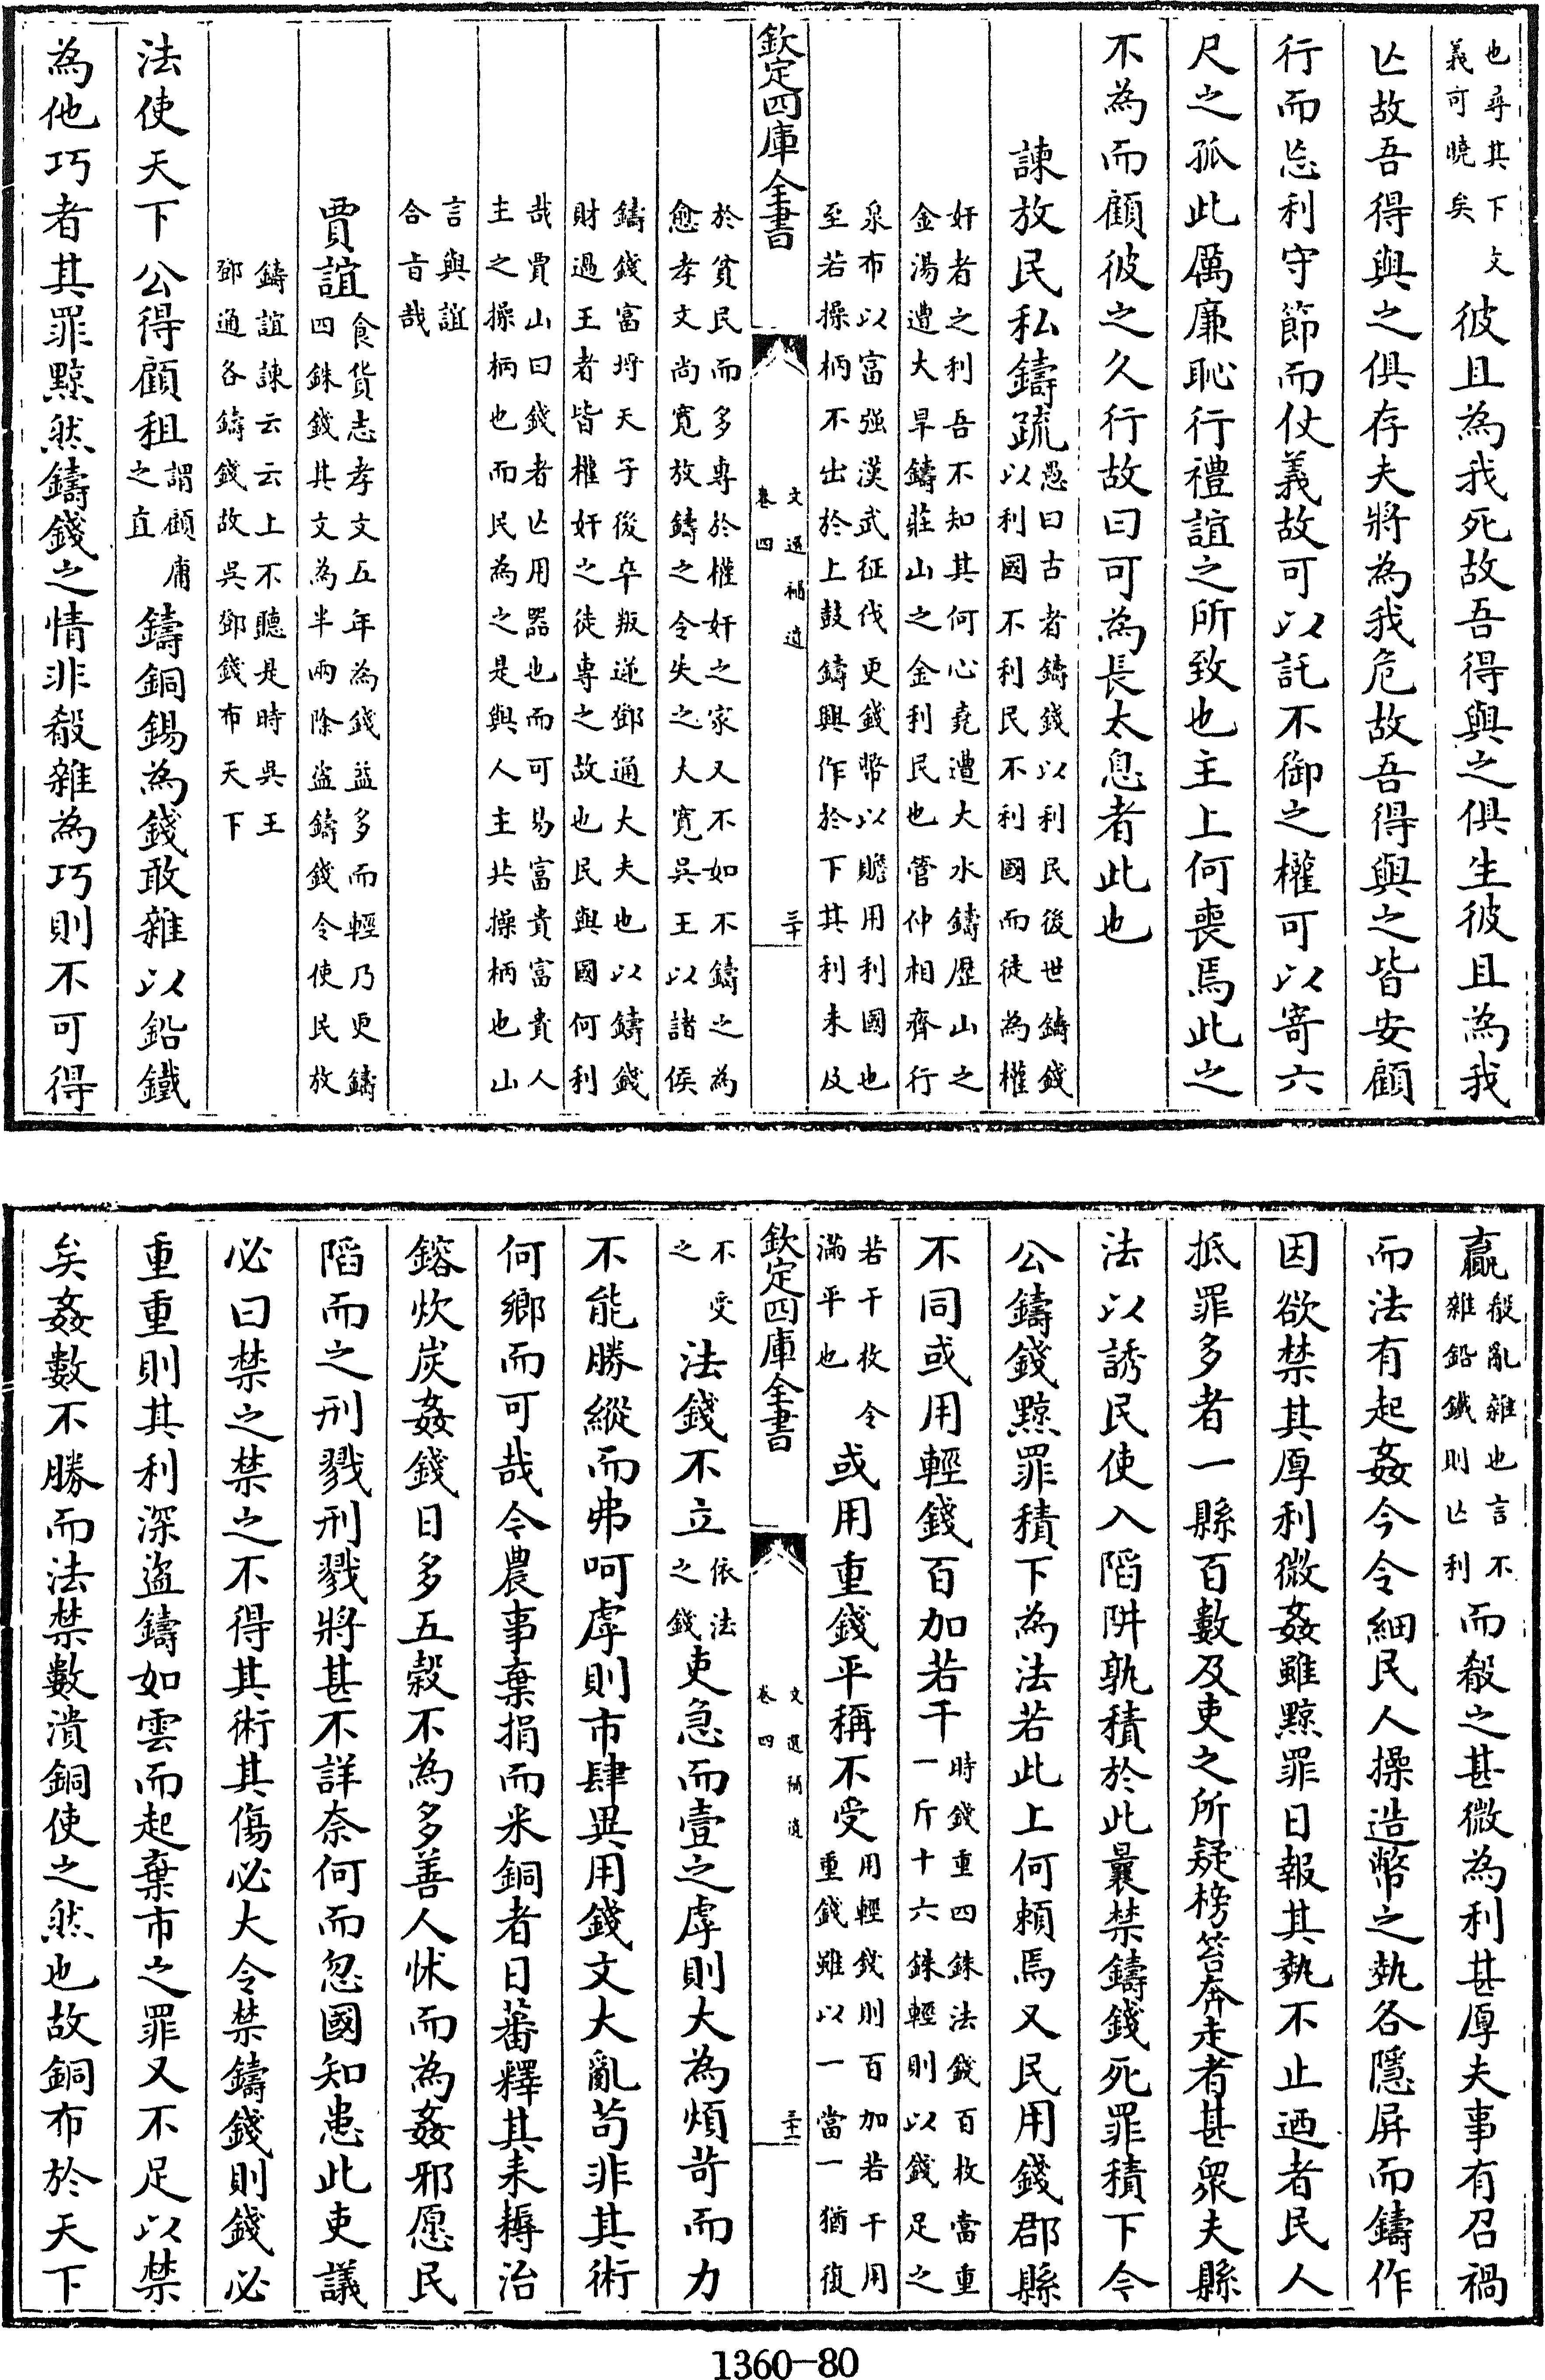 也尋其下文義可曉矣彼且為我死故吾得與之俱生彼且為我
亾故吾得與之俱存夫將為我危故吾得與之皆安顧
行而忘利守節而仗義故可以託不御之權可以寄六
尺之孤此厲廉恥行禮誼之所致也主上何喪焉此之
不為而顧彼之久行故曰可為長太息者此也
諫放民私鑄疏愚曰古者鑄錢以利民後世鑄錢以利國不利民不利國而徒為權
奸者之利吾不知其何心堯遭大水鑄歷山之
金湯遭大旱鑄莊山之金利民也管仲相齊行
泉布以富强漢武征伐更錢幣以贍用利國也
至若操柄不出於上鼓鑄興作於下其利未及
欽定四庫全書
文選補遺
卷四
三十
於貧民而多專於權奸之家又不如不鑄之為
愈孝文尚寛放鑄之令失之大寛吳王以諸侯
鑄錢富埒天子後卒叛逆鄧通大夫也以鑄錢
財過王者皆權奸之徒專之故也民與國何利
哉賈山曰錢者亾用器也而可易富貴富貴人
主之操柄也而民為之是與人主共操柄也山
言與誼
合旨哉
賈誼食貨志孝文五年為錢益多而輕乃更鑄四銖錢其文為半兩除盜鑄錢令使民放
鑄誼諫云云上不聽是時吳王
鄧通各鑄錢故吳鄧錢布天下
法使天下公得顧租謂顧庸之直鑄銅錫為錢敢雜以鉛鐵
為他巧者其罪黥然鑄錢之情非殽雜為巧則不可得
贏殽亂雜也言不雜鉛鐵則亾利而殽之甚微為利甚厚夫事有召禍
而法有起姦今令細民人操造幣之埶各隱屏而鑄作
因欲禁其厚利微姦雖黥罪日報其埶不止廼者民人
抵罪多者一縣百數及吏之所疑榜笞奔走者甚衆夫縣
法以誘民使入陷阱孰積於此曩禁鑄錢死罪積下今
公鑄錢黥罪積下為法若此上何賴焉又民用錢郡縣
不同或用輕錢百加若干時錢重四銖法錢百枚當重一斤十六銖輕則以錢足之
若干枚令滿平也或用重錢平稱不受用輕錢則百加若干用重錢雖以一當一猶復
欽定四庫全書
文選補遺
卷四
三十一
不受之法錢不立依法之錢吏急而壹之虖則大為煩苛而力
不能勝縱而弗呵虖則市肆異用錢文大亂苟非其術
何鄉而可哉今農事棄捐而米銅者日蕃釋其耒耨冶
鎔炊炭姦錢日多五穀不為多善人怵而為姦邪愿民
陷而之刑戮刑戮將甚不詳奈何而忽國知患此吏議
必曰禁之禁之不得其術其傷必大令禁鑄錢則錢必
重重則其利深盜鑄如雲而起棄市之罪又不足以禁
矣姦數不勝而法禁數潰銅使之然也故銅布於天下
1360—80